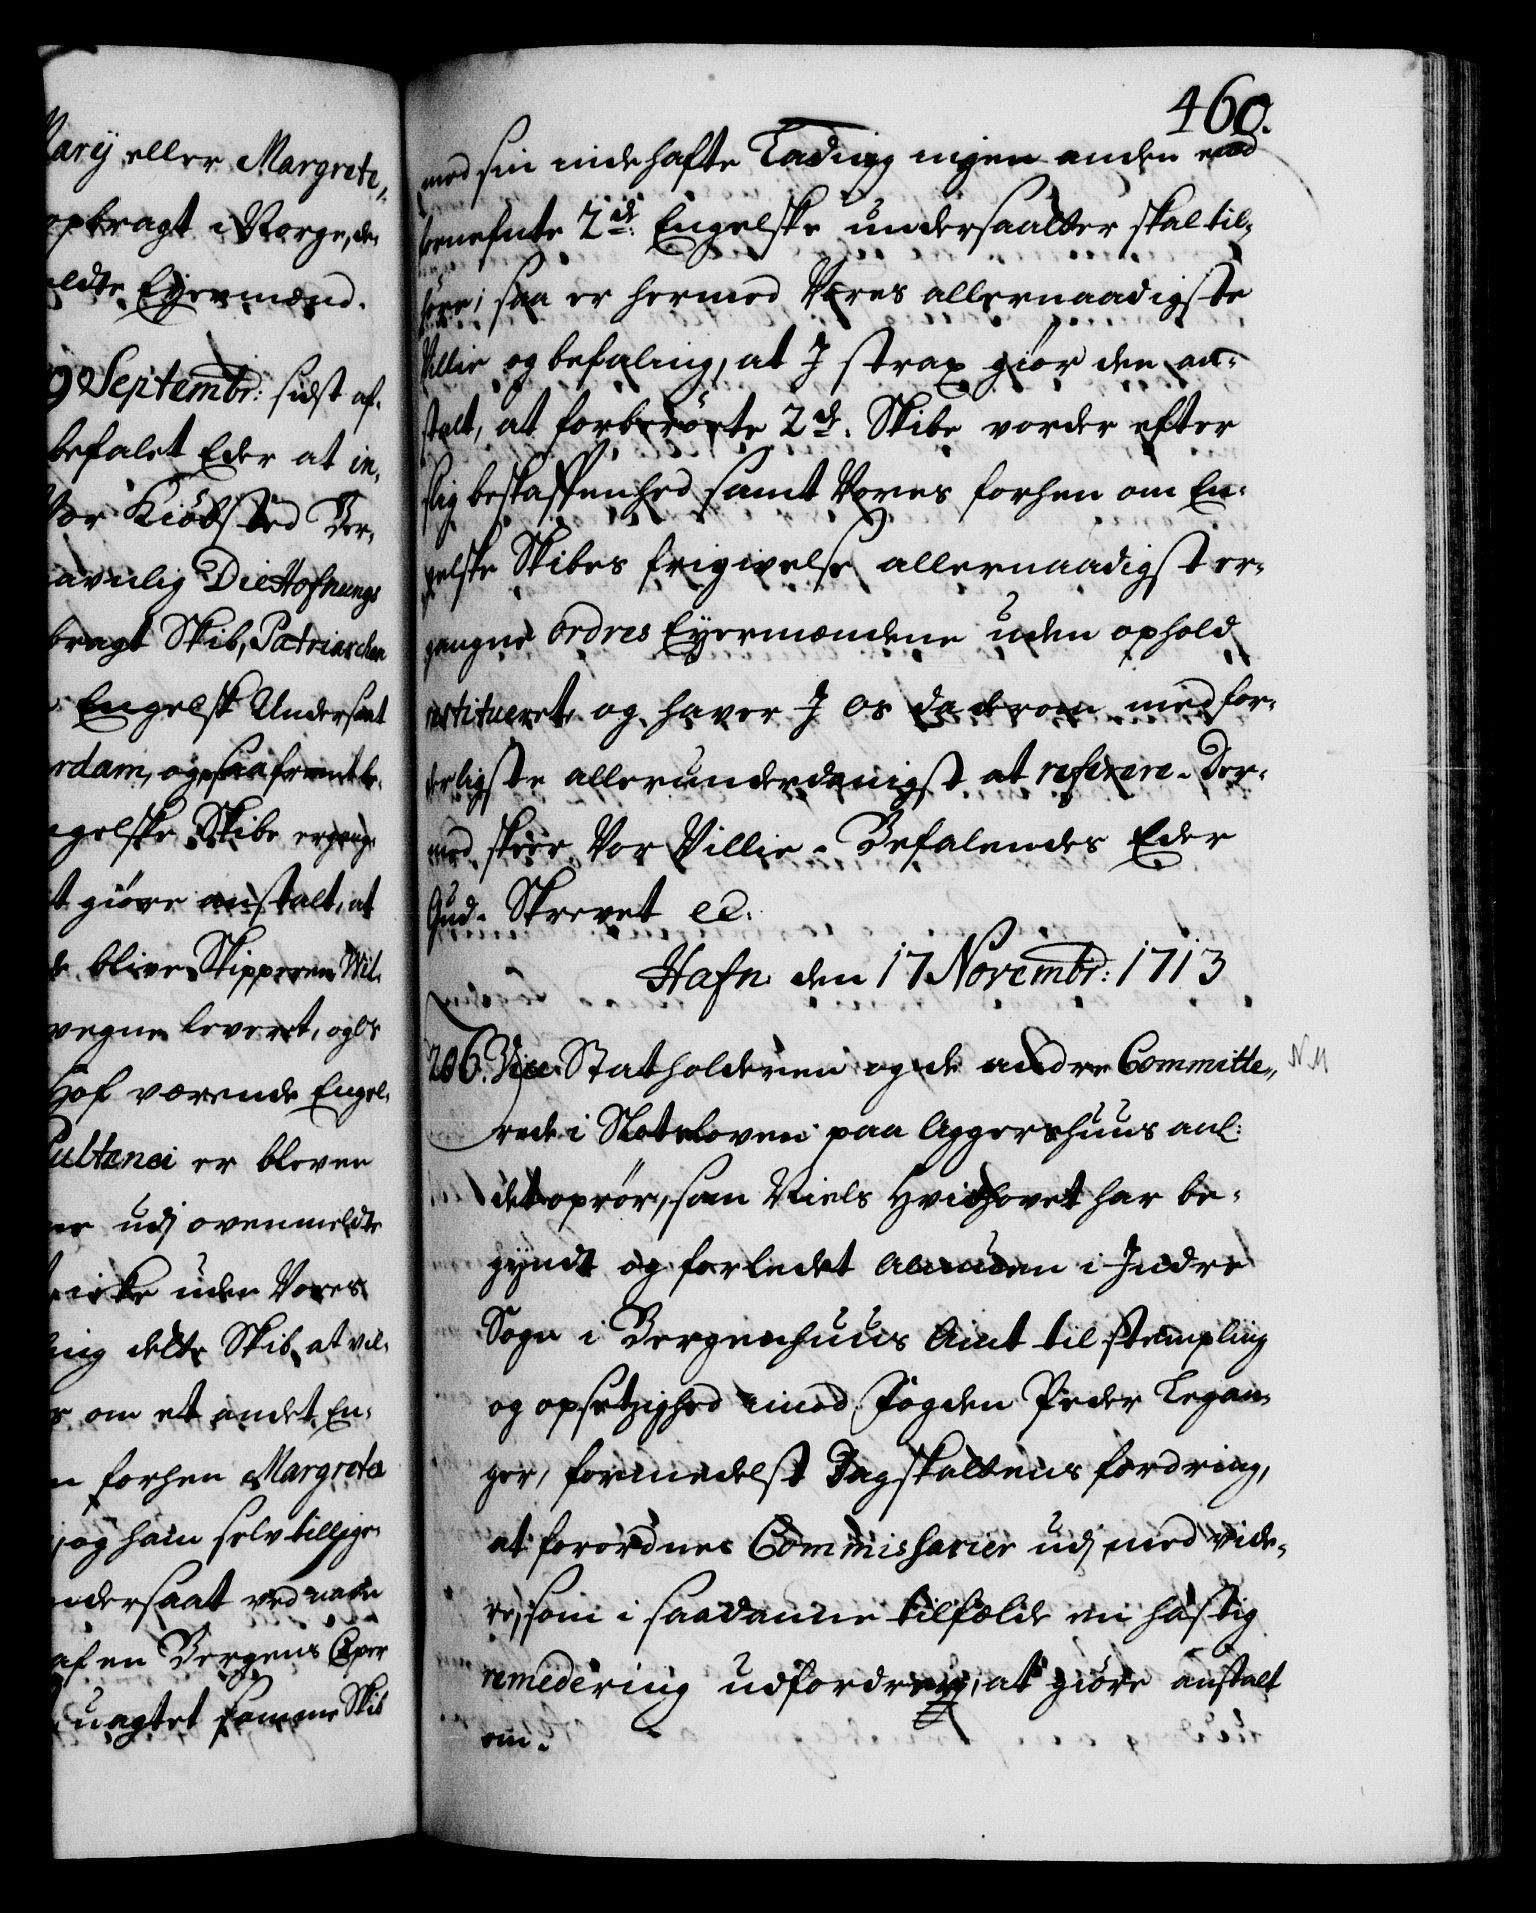 Marÿ eller Margrete,,
opbragt i Norge, de
eldte Eÿermænd.
9 Septembr: sidst af-
befalet Eder at in-
Vor Kiöbsted Ber-
navnlig Die Hofnungs
bragt Skib, Patriarchen
Engelsk Undersaat
rdam, og saafremt be-
ngelske Skibe ergang-
t giöre anstalt, at
blive Skipperen Wil-
vegne leveret, og Os
Hof værende Engel-
Pultenei er bleven
udj ovenmeldte
icke uden Vores
ing dette Skib, at vil-
om et andet En-
n forhen Margreta
og ham selv tillige-
ndersaat ved navn
af en Bergens Caper
uagtet samme Skib
460.
med sin indehafte Lading ingen anden end
benefnte 2de: Engelske undersaatter skal til-
höre; saa er hermed Vores allernaadigste
Villie og befaling, at I strax giör den an-
stalt, at forberörte 2de. Skibe vorder efter
slig beskaffenhed samt Vores forhen om En-
gelske Skibes frigivelse allernaadigst er-
gangne ordres Eÿermændene uden ophold
restitueret, og haver I Os da derom med for-
derligste allerunderdanigst at referere. Der-
med skeer Vor Villie. Befalendes Eder
Gud. Skrevet etc:
Hafn: den 17 Novembr: 1713
206. Vice Statholderen og de andre Committe,,
rede i Slotsloven paa Aggershuus anl:
det oprör, som Niels Hvidhovet har be-
gÿndt og forledet Almuen i Indre
Sogn i Bergenhuus Amt til stempling
og opsetzighed imod Fogden Peder Legan-
ger, formedelst Dagskattens fordring,
at forordnes Commissarier udj med vide-
re, som i saadanne tilfælde en hastig
remedering udfordrer, at giöre anstalt
om.
N.M